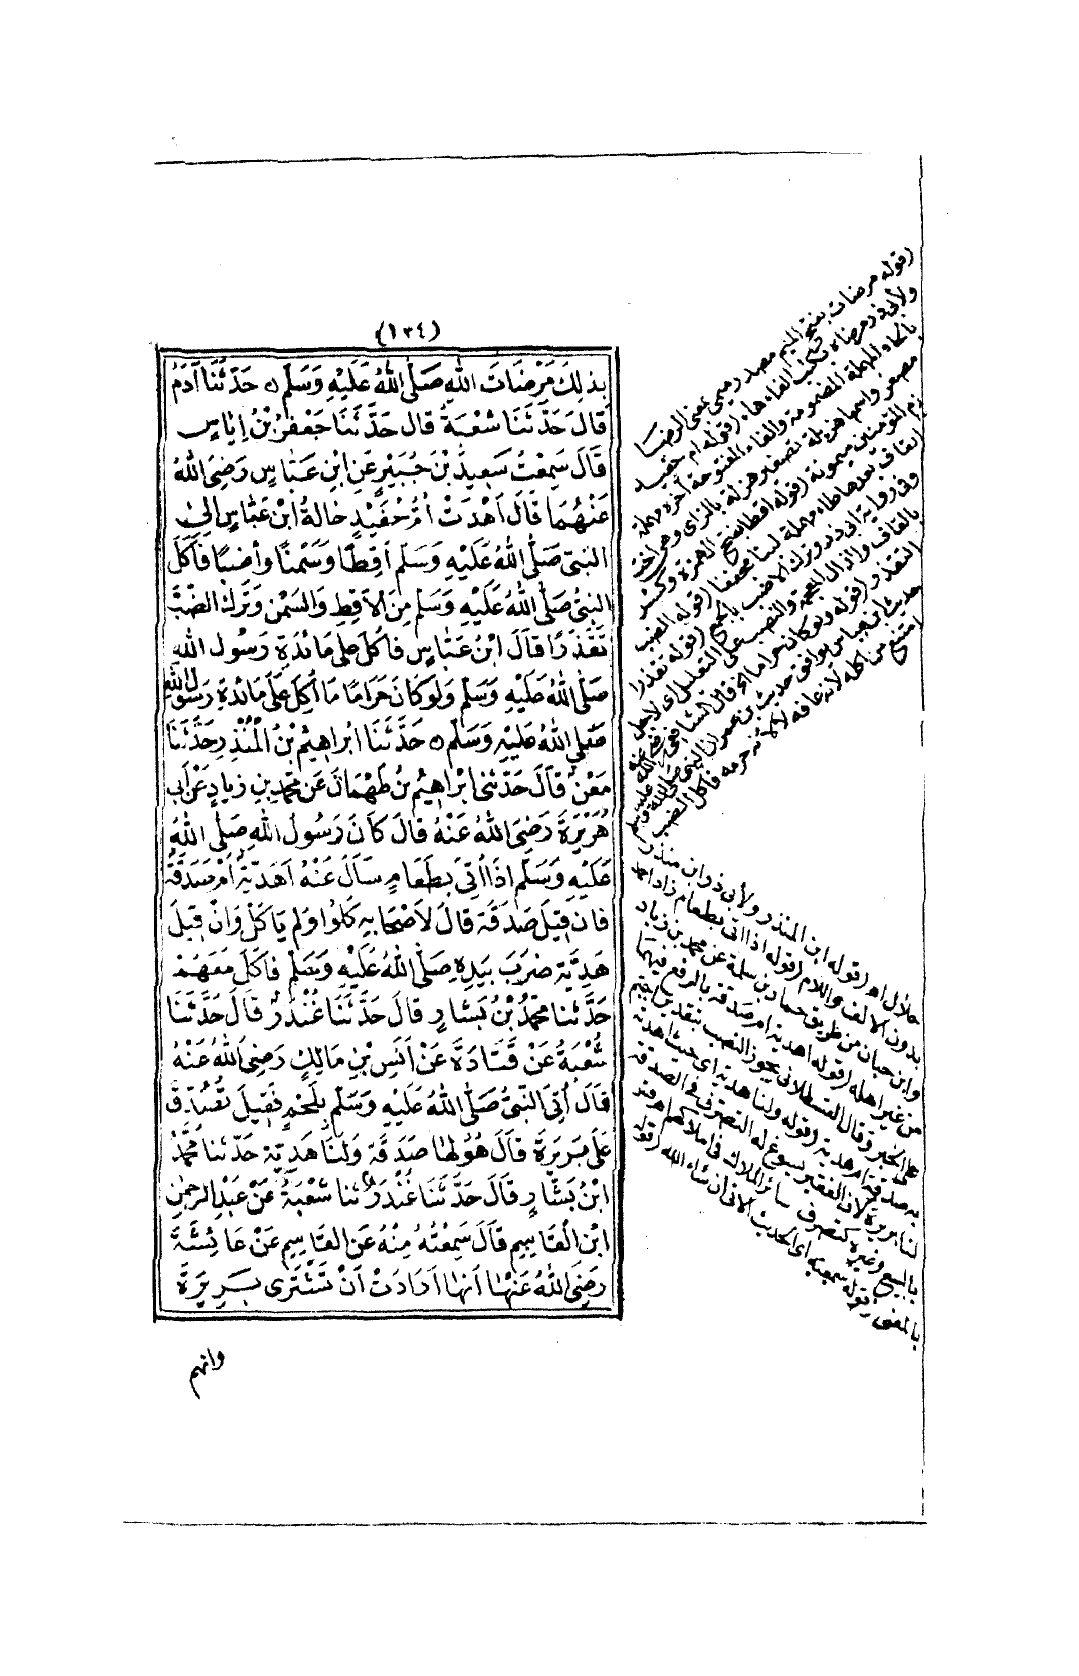 (١٣٤)
بِذٰلِكَ مَرْضَاتَ اللهِ صَلَّى اللهُ عَلَيْهِ وَسَلَّمَ ه حَدَّثَنَا آدَمُ
قَالَ حَدَّثَنَا شُعْبَةُ قَالَ حَدَّثَنَا جَعْفَرُ بْنُ اِيَاسٍ
قَالَ سَمِعْتُ سَعِيدَ بْنَ جُبَيْرٍ عَنِ ابْنِ عَبَّاسٍ رَضِىَ اللهُ
عَنْهُمَا قَالَ أَهْدَتْ أُمُّ حُفَيْدٍ خَالَةُ ابْنِ عَبَّاسٍ اِلَى
النَّبِىِّ صَلَّى اللهُ عَلَيْهِ وَسَلَّمَ أَقِطًا وَسَمْنًا وَأَضُبًّا فَأَكَلَ
النَّبِىُّ صَلَّى اللهُ عَلَيْهِ وَسَلَّمَ مِنَ الْاَقِطِ وَالسَّمْنِ وَتَرَكَ الضَّبَّ
تَقَذُّرًا قَالَ ابْنُ عَبَّاسٍ فَأُكِلَ عَلَى مَائِدَةِ رَسُولِ اللهِ
صَلَّى اللهُ عَلَيْهِ وَسَلَّمَ وَلَوْ كَانَ حَرَامًا مَا أُكِلَ عَلَى مَائِدَةِ رَسُولِ اللهِ
صَلَّى اللهُ عَلَيْهِ وَسَلَّمَ ه حَدَّثَنَا اِبْرَاهِيمُ بْنُ الْمُنْذِرِ حَدَّثَنَا
مَعْنٌ قَالَ حَدَّثَنِى اِبْرَاهِيمُ بْنُ طَهْمَانَ عَنْ مُحَمَّدِ بْنِ زِيَادٍ عَنْ أَبِى
هُرَيْرَةَ رَضِىَ اللهُ عَنْهُ قَالَ كَانَ رَسُولُ اللهِ صَلَّى اللهُ
عَلَيْهِ وَسَلَّمَ اِذَا أُتِىَ بِطَعَامٍ سَأَلَ عَنْهُ أَهَدِيَّةٌ أَمْ صَدَقَةٌ
فَاِنْ قِيلَ صَدَقَةٌ قَالَ لِاَصْحَابِهِ كُلُوا وَلَمْ يَأْكُلْ وَاِنْ قِيلَ
هَدِيَّةٌ ضَرَبَ بِيَدِهِ صَلَّى اللهُ عَلَيْهِ وَسَلَّمَ فَأَكَلَ مَعَهُمْ
حَدَّثَنَا مُحَمَّدُ بْنُ بَشَّارٍ قَالَ حَدَّثَنَا غُنْدَرٌ قَالَ حَدَّثَنَا
شُعْبَةُ عَنْ قَتَادَةَ عَنْ أَنَسِ بْنِ مَالِكٍ رَضِىَ اللهُ عَنْهُ
قَالَ أُتِىَ النَّبِىُّ صَلَّى اللهُ عَلَيْهِ وَسَلَّمَ بِلَحْمٍ فَقِيلَ تُصُدِّقَ
عَلَى بَرِيرَةَ قَالَ هُوَ لَهَا صَدَقَةٌ وَلَنَا هَدِيَّةٌ حَدَّثَنَا مُحَمَّدُ
ابْنُ بَشَّارٍ قَالَ حَدَّثَنَا غُنْدَرٌ ثنا شُعْبَةُ عَنْ عَبْدِ الرَّحْمٰنِ
ابْنِ الْقَاسِمِ قَالَ سَمِعْتُهُ مِنْهُ عَنِ الْقَاسِمِ عَنْ عَائِشَةَ
رَضِىَ اللهُ عَنْهَا أَنَّهَا أَرَادَتْ أَنْ تَشْتَرِىَ بَرِيرَةَ
وانهم
(قوله مرضات بفتح الميم مصدر ميمى بمعنى الرضا
ولأبى ذر مرضاه
بالحاء المهملة المضمومة والفاء المفتوحة آخره مهملة
مصغر واسمها هزيلة تصغير هزلة بالزاى وهى اخت
ام المؤمنين ميمونة (قوله اقطا بفتح الهمزة وكسر
القاف بعدها طاء مهملة لبنا مجففا (قوله الضب
وفى رواية ابى ذر وترك الاضب بالجمع (قوله تقذرا
بالقاف والذال المعجمة والنصب على التعليل اى لاجل
التقذر (قوله ولو كان حراما الخ قال الشافعى رضى الله عنه
حديث ابن عباس يوافق حديث بن عمر ان النبى صلى الله عليه وسلم
امتنع من اكله لانه عافه لا لانه حرمه فاكل الضب
حلال اه (قوله ابن المنذر ولأبى ذر ابن منذر
بدون الالف واللام (قوله اذا اتى بطعام زاد احمد
وابن حبان من طريق حماد بن سلمة عن محمد بن زياد
من غير اهله (قوله اهدية ام صدقة بالرفع فيهما
على الخبر وقال القسطلانى يجوز النصب بتقدير
به صدقة ام هدية (قوله ولنا هدية اى حيث اهدته
لنا بريرة لان الفقير يسوغ له التصرف فى الصدقة
بالبيع وغيره كتصرف سائر الملاك فى املاكهم
بالمعنى (قوله سمعته اى الحديث الاتى ان شاء الله (قوله